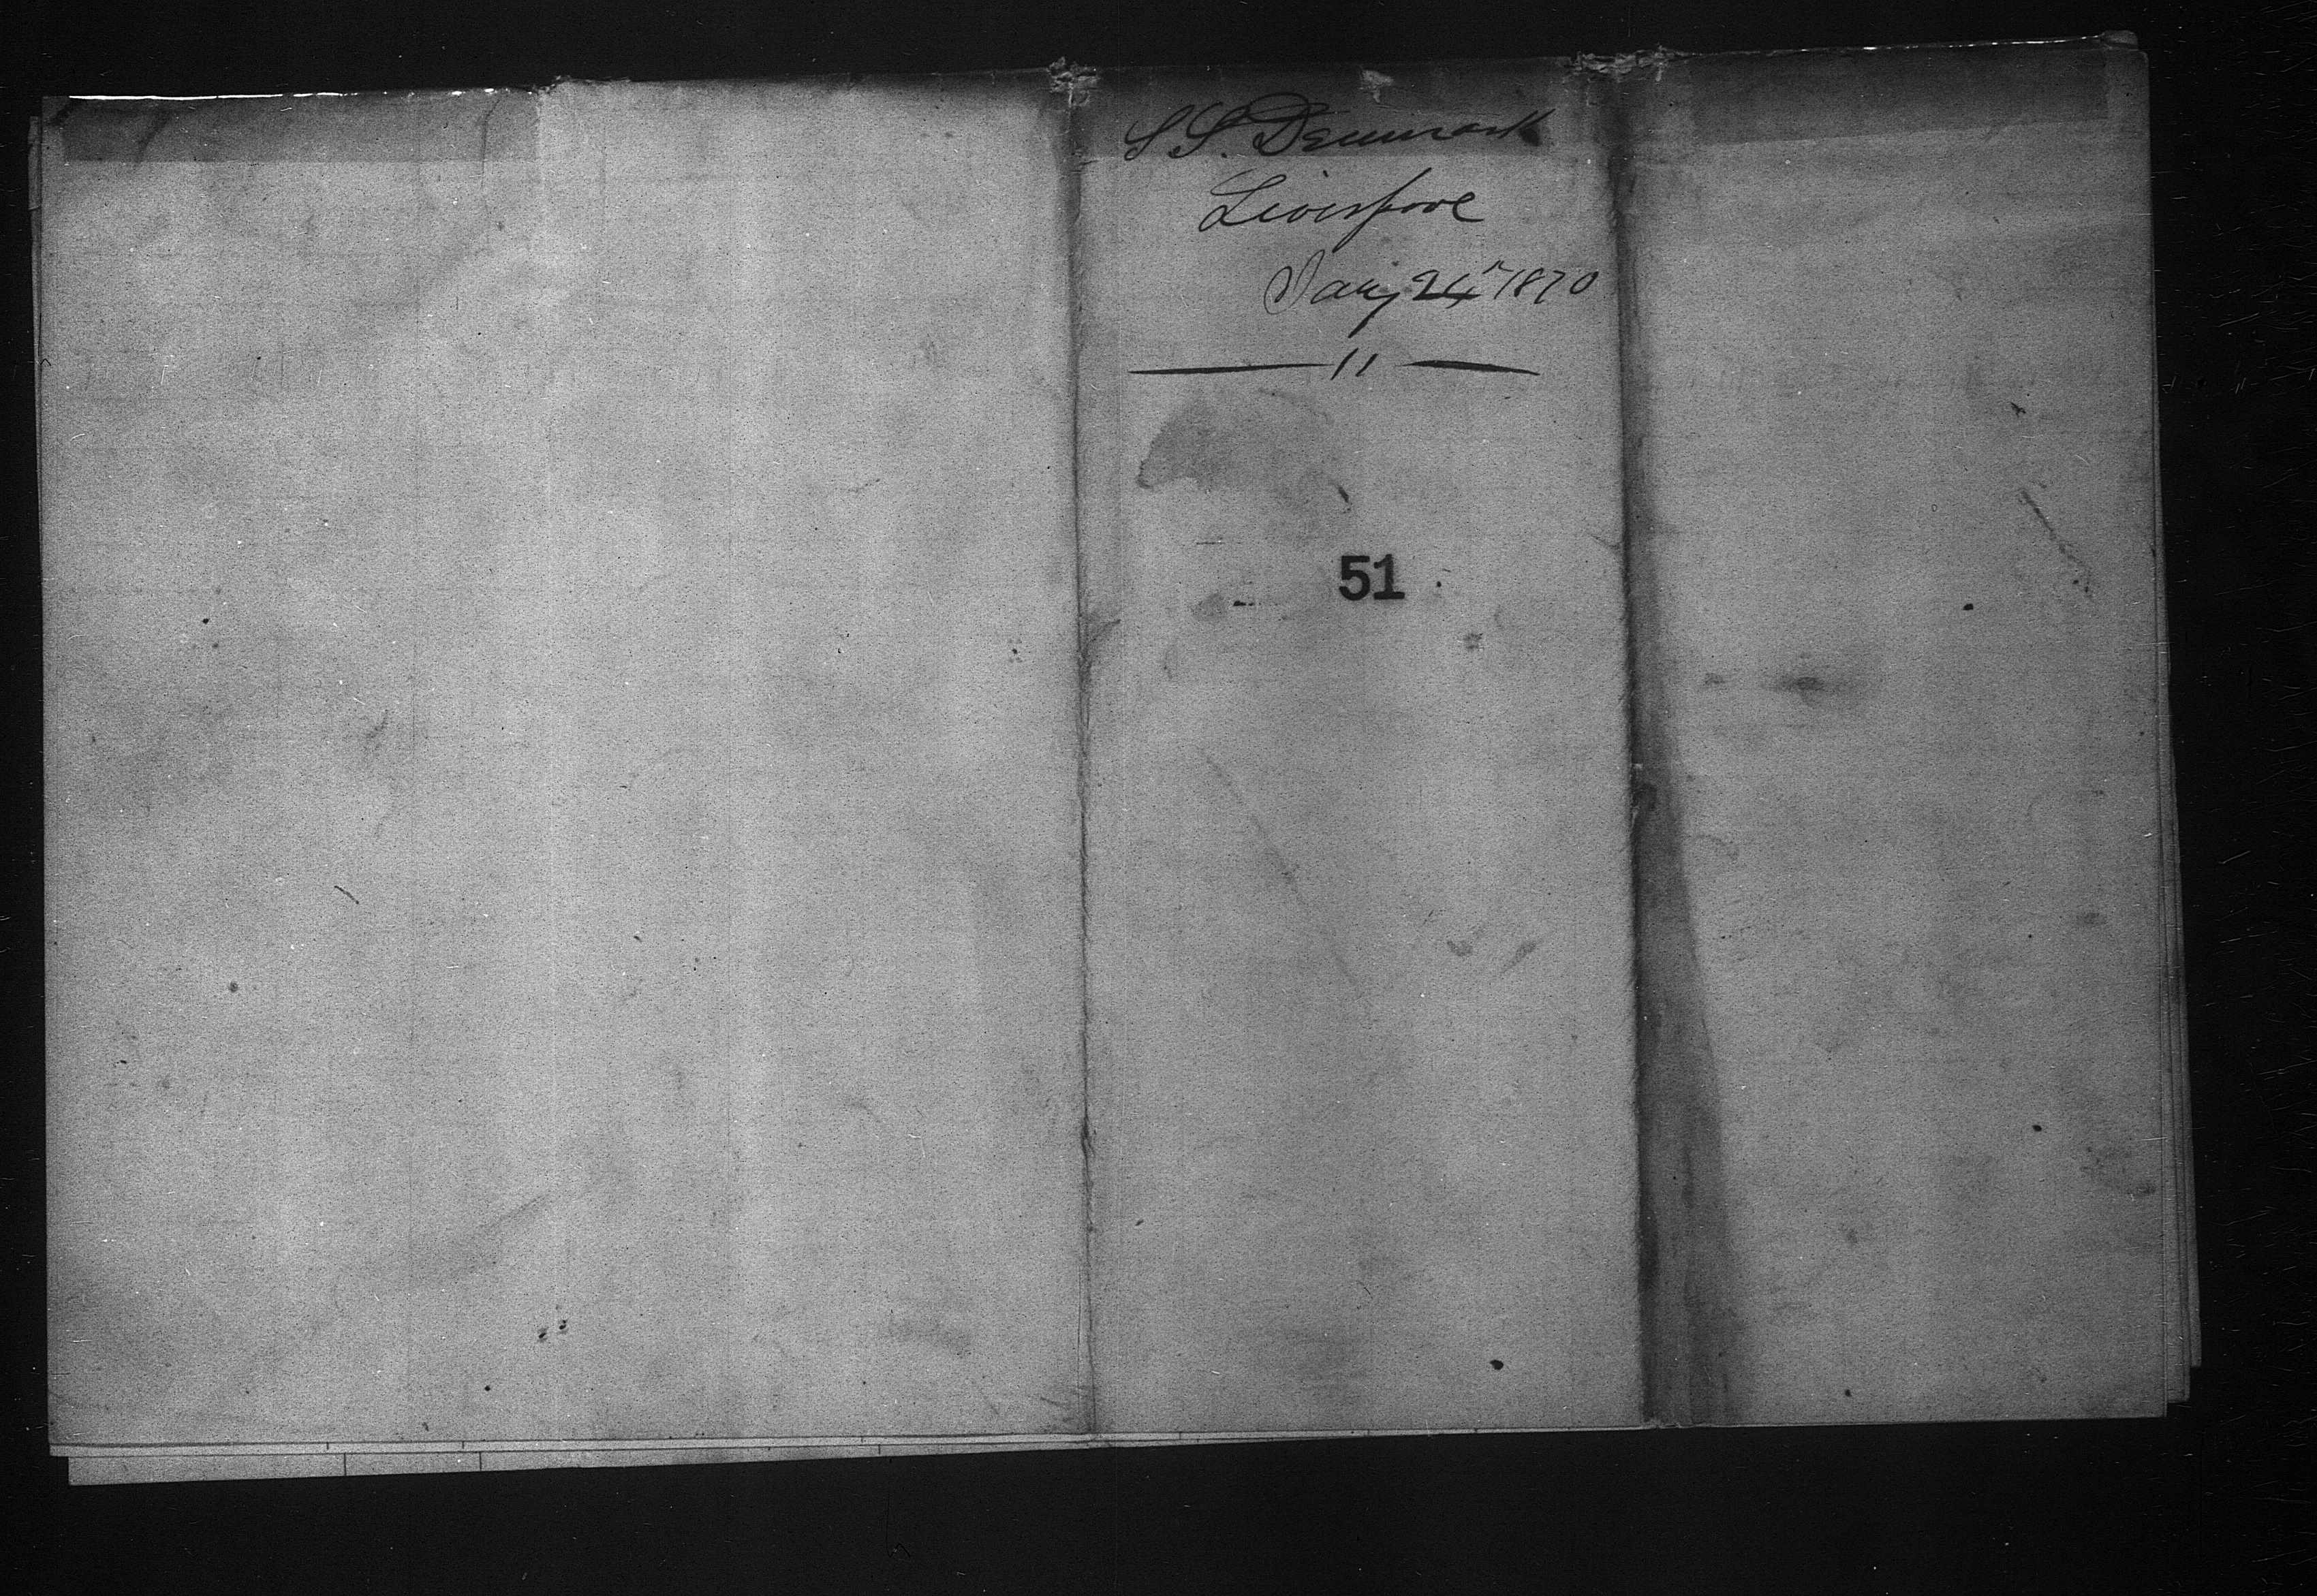 S S. Denmark
Liverpool
Jany 24th 1870
11
51